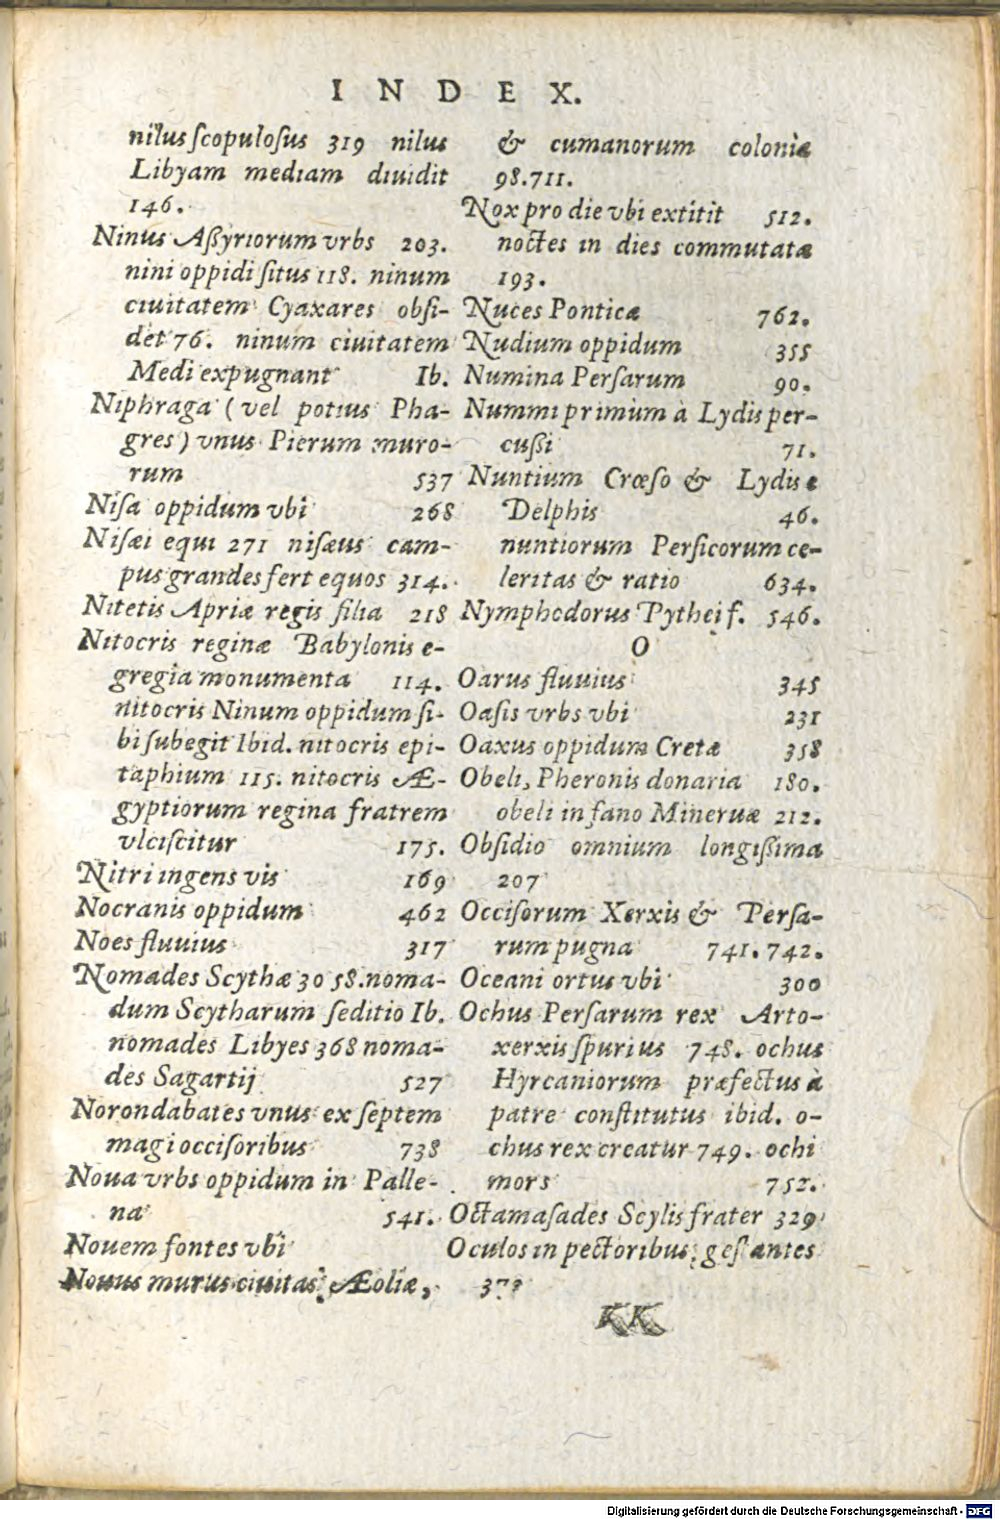 INDEX.
nilus scopulosus 319 nilus
Libyam mediam diuidit
146.
Ninus Aßyriorum vrbs 203.
nini oppidi situs 118. ninum
ciuitatem Cyaxares obsi-
det 76. ninum ciuitatem
Medi expugnant Ib.
Niphraga (vel potius Pha-
gres) vnus Pierum muro-
rum 537
Nisa oppidum vbi 268
Nisæi equi 271 nisæus cam-
pus grandes fert equos 314.
Nitetis Apriæ regis filia 218
Nitocris reginæ Babylonis e-
gregia monumenta 114.
nitocris Ninum oppidum si-
bi subegit Ibid. nitocris epi-
taphium 115. nitocris Æ-
gyptiorum regina fratrem
vlciscitur 175.
Nitri ingens vis 169
Nocranis oppidum 462
Noes fluuius 317
Nomades Scythæ 30 58. noma-
dum Scytharum seditio Ib.
nomades Libyes 368 noma-
des Sagartij 527
Norondabates vnus ex septem
magi occisoribus 738
Noua vrbs oppidum in Palle-
na 541.
Nouem fontes vbi
Nouus murus ciuitas Æoliæ,
& cumanorum colonia
98.711.
Nox pro die vbi extitit 512.
noctes in dies commutatæ
193.
Nuces Ponticæ 762.
Nudium oppidum 355
Numina Persarum 90.
Nummi primum à Lydis per-
cußi 71.
Nuntium Crœso & Lydis e
Delphis 46.
nuntiorum Persicorum ce-
leritas & ratio 634.
Nymphodorus Pythei f. 546.
O
Oarus fluuius 345
Oasis vrbs vbi 231
Oaxus oppidum Cretæ 358
Obeli, Pheronis donaria 180.
obeli in fano Mineruæ 212.
Obsidio omnium longißima
207
Occisorum Xerxis & Persa-
rum pugna 741. 742.
Oceani ortus vbi 300
Ochus Persarum rex Arto-
xerxis spurius 748. ochus
Hyrcaniorum præfectus à
patre constitutus ibid. o-
chus rex creatur 749. ochi
mors 752.
Octamasades Scylis frater 329
Oculos in pectoribus gestantes
KK
Digitalisierung gefördert durch die Deutsche Forschungsgemeinschaft - DFG